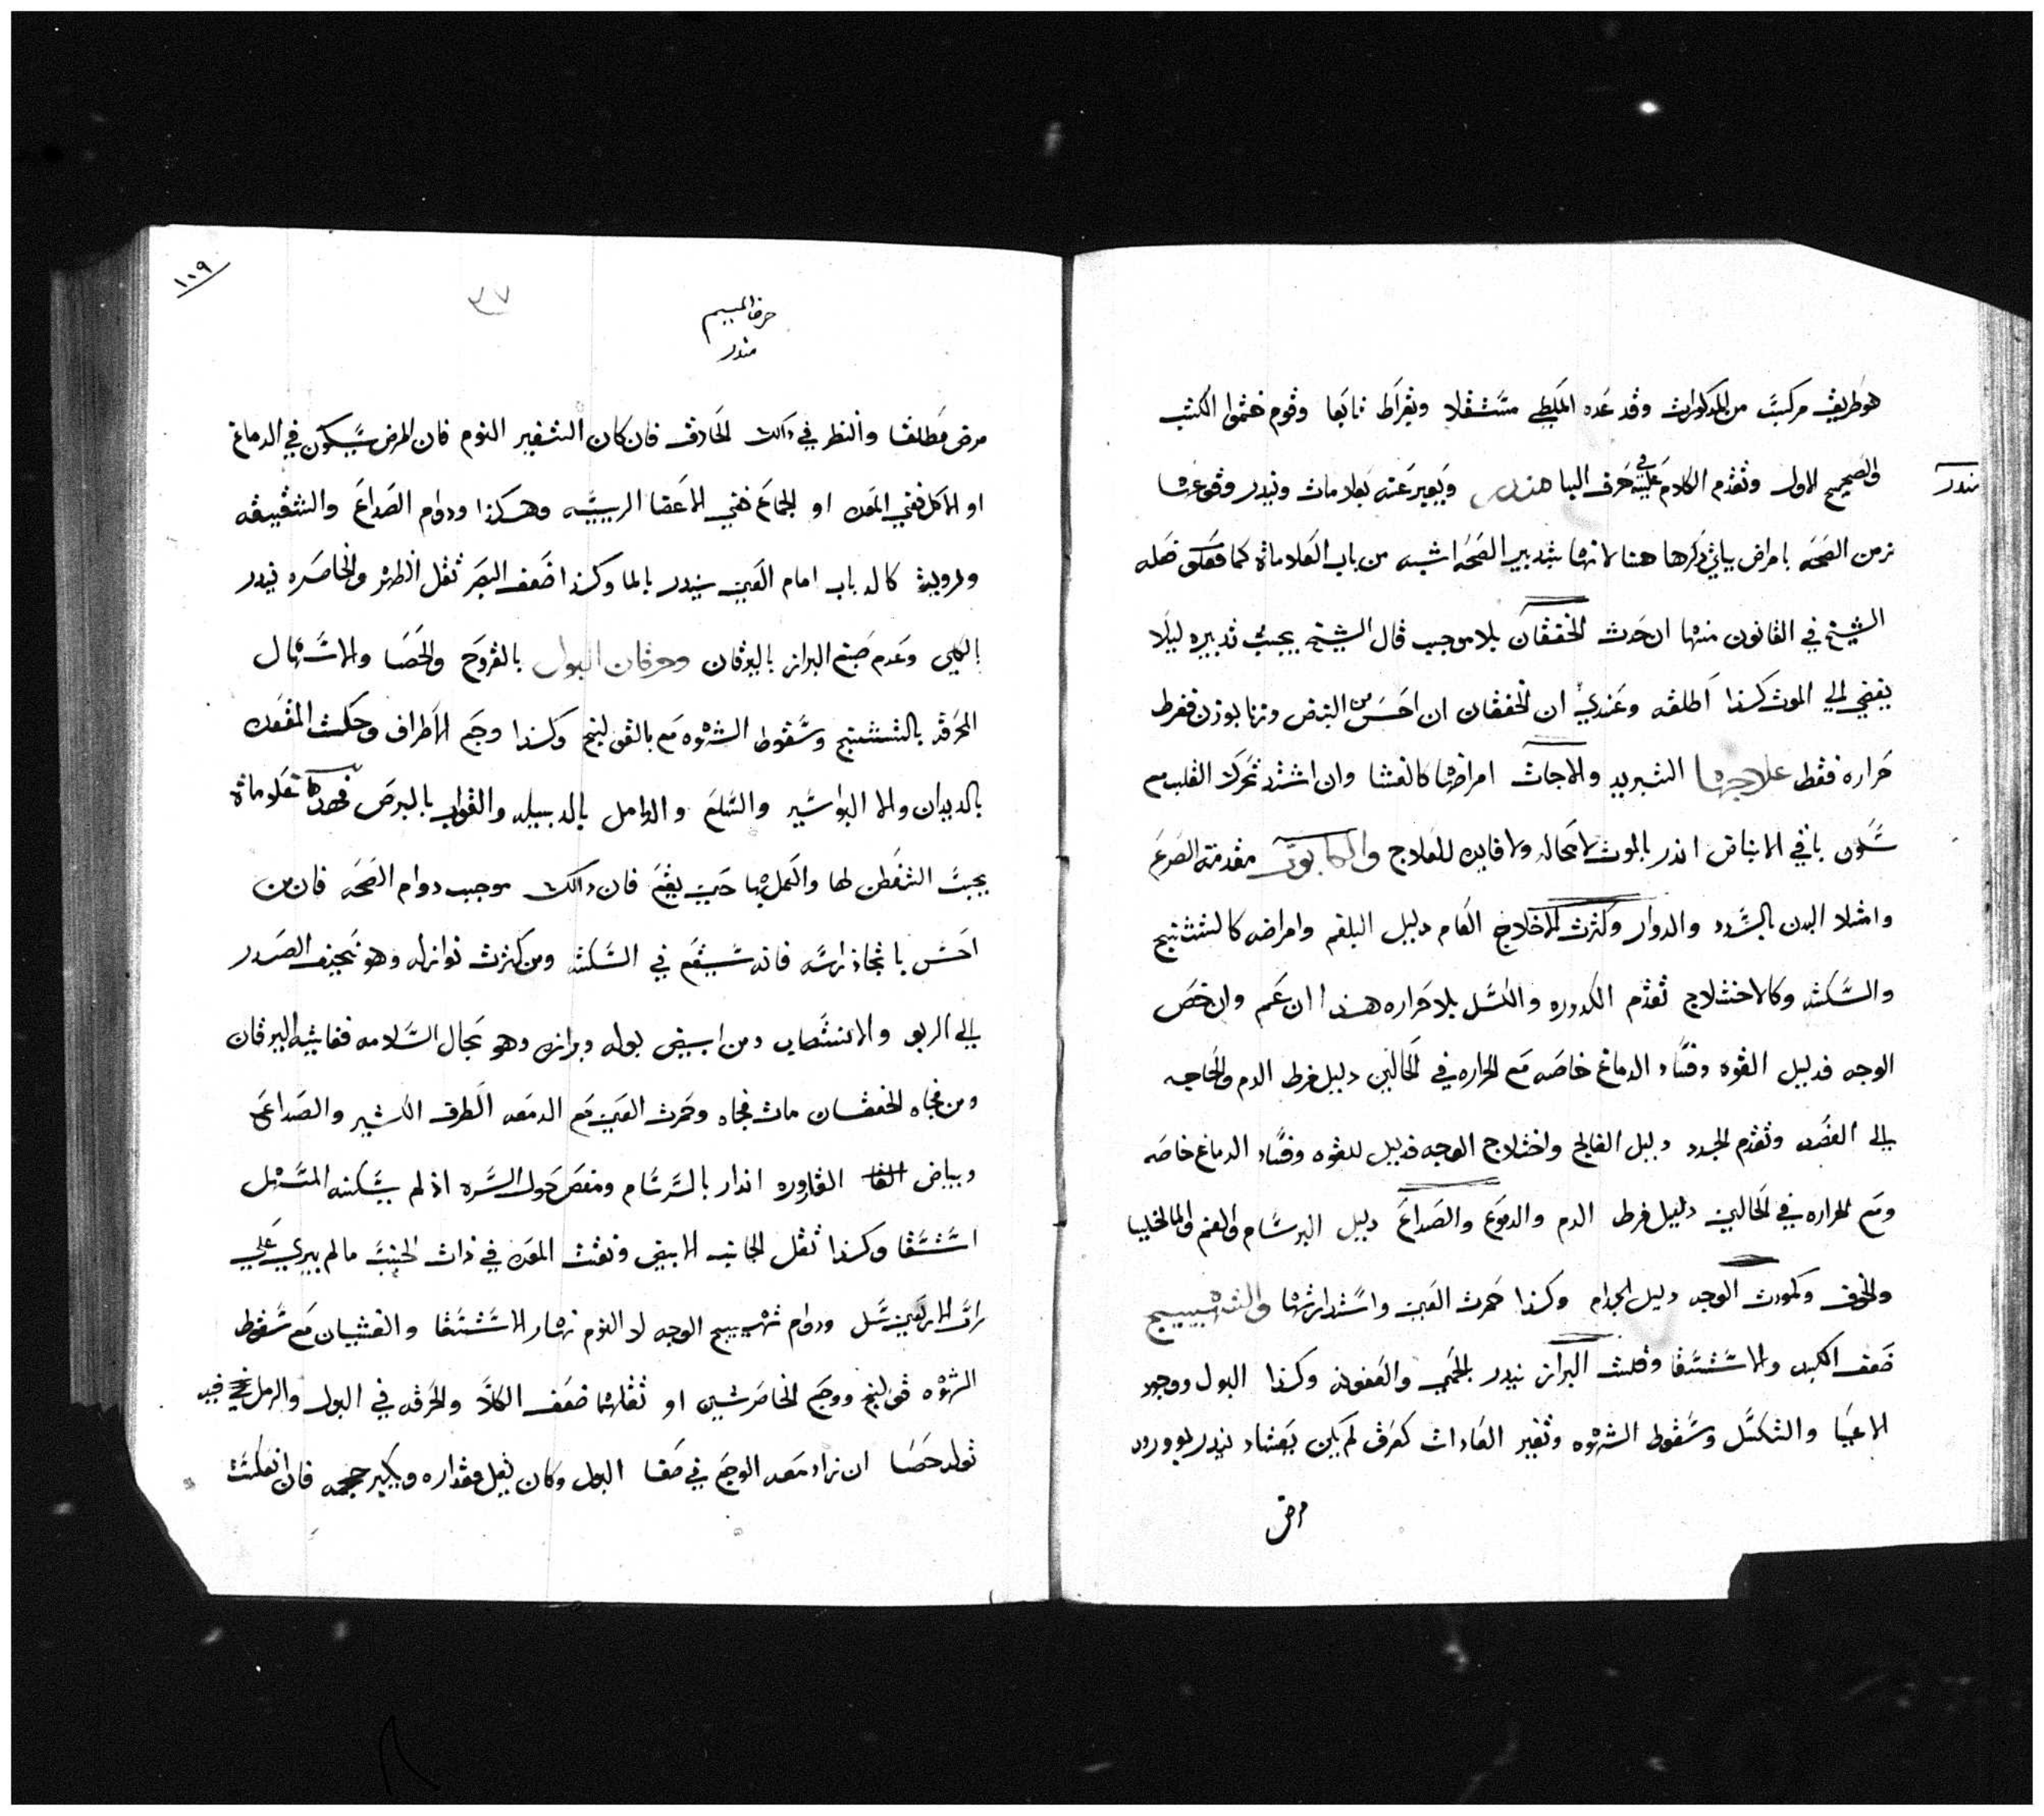 هو طريق مركبت من المدكورات وقد عده الملطي مستقلا وبقراط تابعا وقوم ختموا الكتب
مندر
والصحيح الاول وتقدم الكلام عليه في حرف البا مندر ويعبر عنه بعلامات وتندر وقوعها
زمن الصحه بامراض ياتي دكرها هنا لانها بتدبير الصحه اشبه من باب العلامات كما فعله
الشيخ في القانون منها ان حدث الخفقان بلا موجب قال الشيخ يجب تدبيره ليلا
يفضي الي الموت كذا اطلقه وعندي ان الخفقان ان احس من النبض وزنا بوزن ففرط
حراره فقط علاجها التبريد والا جات امراضها كالغشا وان اشتد تحرك القلب مع
سكون باقي الانباض اندر بالموت لا محاله ولا فايده للعلاج والكابوس مقدمة الصرع
وامتلا البدن بالسدد والدوار وكثرت الاختلاج العام دليل البلغم وامراضه كالتشنج
والسكته وكالاختلاج تقدم الكدوره والكسل بلا حراره هذا ان عم وان خص
الوجه فدليل القوه وفساد الدماغ خاصه مع الحراره في الحالين دليل فرط الدم والحاجه
الي الفصد وتقدم الخدد دليل الفالج واختلاج الوجه فدليل للقوه وفساد الدماغ خاصه
ومع الحراره في الحالين دليل فرط الدم والدموع والصداع دليل البرسام والغم والمالخليا
والخوف وكمودت الوجه دليل الجدام وكذا حمرت العين واستدارتها والتهييج
ضعف الكبد والاستسقا وقلت البراز تندر بالحمي والعفونه وكذا البول ووجود
الاعيا والتكسل وسقوط الشهوه وتغير العادات كعرق لم يكن يعتاد يندر بورود
مرض
١٠٩
٣٧
حرف الميم
مندر
مرض مطلقا والنظر في دالك للحادق فان كان التغير النوم فان المرض سيكون في الدماغ
او الاكل ففي المعده او الجماع ففي الاعضا الرييسه وهكذا ودوام الصداع والشقيقه
ورويت كالدباب امام العين يندر بالما وكذا ضعف البصر ثقل الظهر والخاصره يندر
بالكلي وعدم صبغ البراز باليرقان وحرقان البول بالقروح والحصا والاسهال
المحرقه بالتشنج وسقوط الشهوه مع بالقولنج وكذا وجع الاطراف وحكت المقعده
بالديدان والا البواسير والسلع والدوامل بالدبيله والقوابي بالبرص فهذه علامات
يجب التفطن لها والعمل بها حين يقع فان دالك موجب دوام الصحه فان من
احس بانجاذ راسه فانه سيقع في السكته ومن كثرت نوازله وهو نحيف الصدر
الي الربو والانتصاب ومن ابيض بوله وبرازه وهو بحال السلامه فغايته اليرقان
ومن فجاه الخفقان مات فجاه وحمرت العين مع الدمعه الطرف الكثير والصداع
وبياض القاروره اندار بالسرسام ومغص حول السره اذ لم يسكنه المسهل
استسقا وكذا ثقل الجانب الايمن ونفث المعده في ذات الجنب ما لم يبري علي
راس الاربعين سل ودوام تهييج الوجه لا النوم نهار الاستسقا والغشيان مع سقوط
الشهوه قولنج ووجع الخاصرتين او ثقلهما ضعف الكلا والحرقه في البول والرمل فيه
تولد حصا ان زاد معه الوجع في صفا البول وكان يقل مقداره ويكبر حجمه فان انعكست